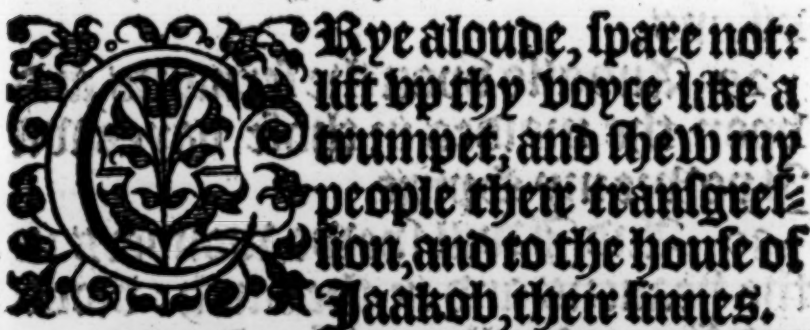 CRye aloude, ſpare not:
lift vp thy voyce like a
trumpet, and ſhew my
people their tranſgreſ⸗
ſion, and to the houſe of
Jaakob, their ſinnes.